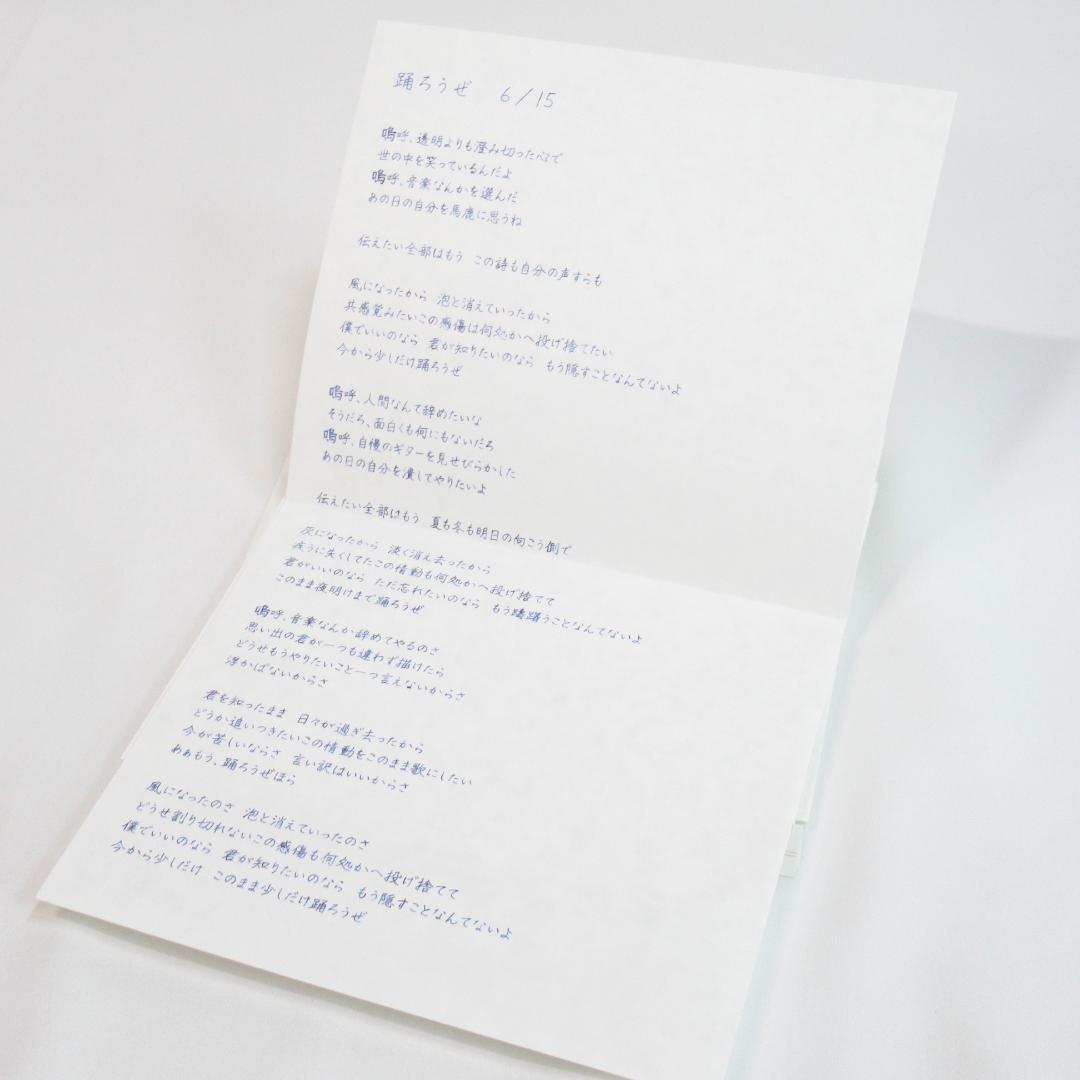 踊ろうぜ　6/15
嗚呼、透明よりも澄み切った心で
世の中を笑っているんだよ
嗚呼、音楽なんかを選んだ
あの日の自分を馬鹿に思うね
伝えたい全部はもう　この詩も自分の声すらも
風になったから　泡と消えていったから
共感覚みたいこの感傷は何処かへ投げ捨てたい
僕でいいのなら　君が知りたいのなら　もう隠すことなんてないよ
今から少しだけ踊ろうぜ
嗚呼、人間なんて辞めたいな
そうだろ、面白くも何にもないだろ
嗚呼、自慢のギターを見せびらかした
あの日の自分を潰してやりたいよ
伝えたい全部はもう　夏も冬も明日の向こう側で
灰になったから　淡く消え去ったから
疾うに失くしてたこの情動も何処かへ投げ捨てて
君がいいのなら　ただ忘れたいのなら　もう躊躇うことなんてないよ
このまま夜明けまで踊ろうぜ
嗚呼、音楽なんか辞めてやるのさ
思い出の君が一つも違わず描けたら
どうせもうやりたいこと一つ言えないからさ
浮かばないからさ
君を知ったまま　日々が過ぎ去ったから
どうか追いつきたいこの情動をこのまま歌にしたい
今が苦しいならさ　言い訳はいいからさ
あぁもう、踊ろうぜほら
風になったのさ　泡と消えていったのさ
どうせ割り切れないこの感傷も何処かへ投げ捨てて
僕でいいのなら　君が知りたいのなら　もう隠すことなんてないよ
今から少しだけ　このまま少しだけ踊ろうぜ